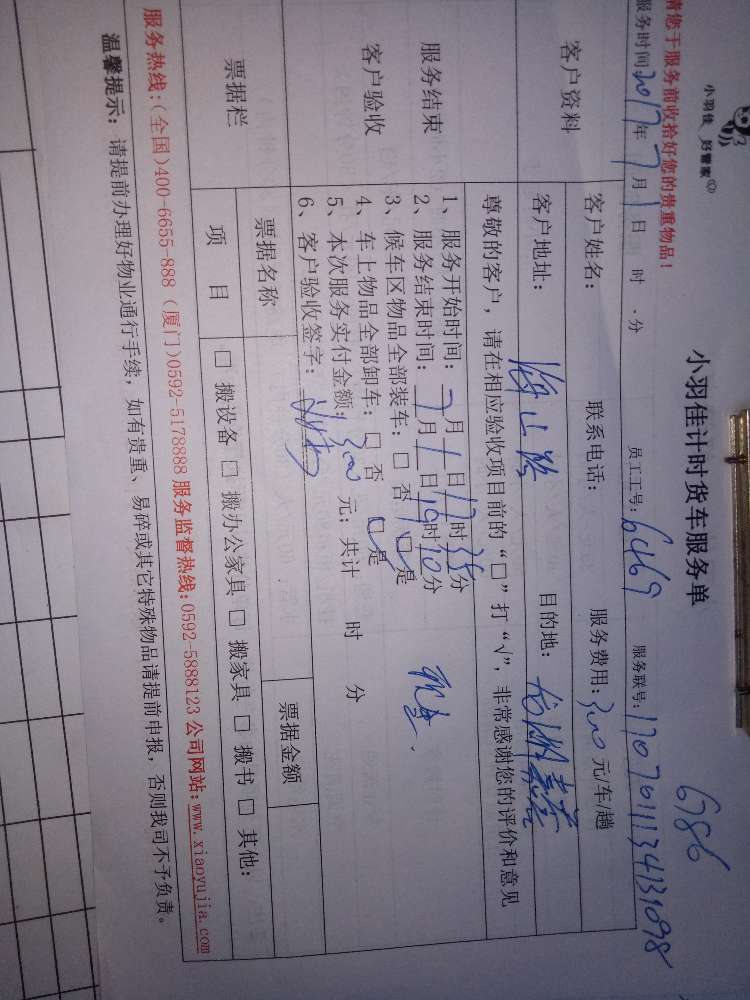 小羽佳 好管家
小羽佳计时货车服务单
6786
请您于服务前收拾好您的贵重物品！
服务时间2017年7月1日 时 分 员工工号：6469 服务联号：1707011134131098
客户资料
客户姓名： 联系电话： 服务费用：300元/车/趟
客户地址： 海山路 目的地：
服务结束
客户验收
尊敬的客户，请在相应验收项目前的“□”打“√”，非常感谢您的评价和意见
1、服务开始时间：7月1日17时35分
2、服务结束时间：7月1日19时10分
3、候车区物品全部装车：□否 □是
4、车上物品全部卸车：□否 □是
5、本次服务实付金额：300元；共计 时 分
6、客户验收签字：
现金.
票据栏
票据名称 票据金额
项目 □搬设备 □搬办公家具 □搬家具 □搬书 □其他：
服务热线：(全国)400-6655-888 (厦门)0592-5178888 服务监督热线：0592-5888123 公司网站：www.xiaoyujia.com
温馨提示：请提前办理好物业通行手续，如有贵重、易碎或其它特殊物品请提前申报，否则我司不予负责。